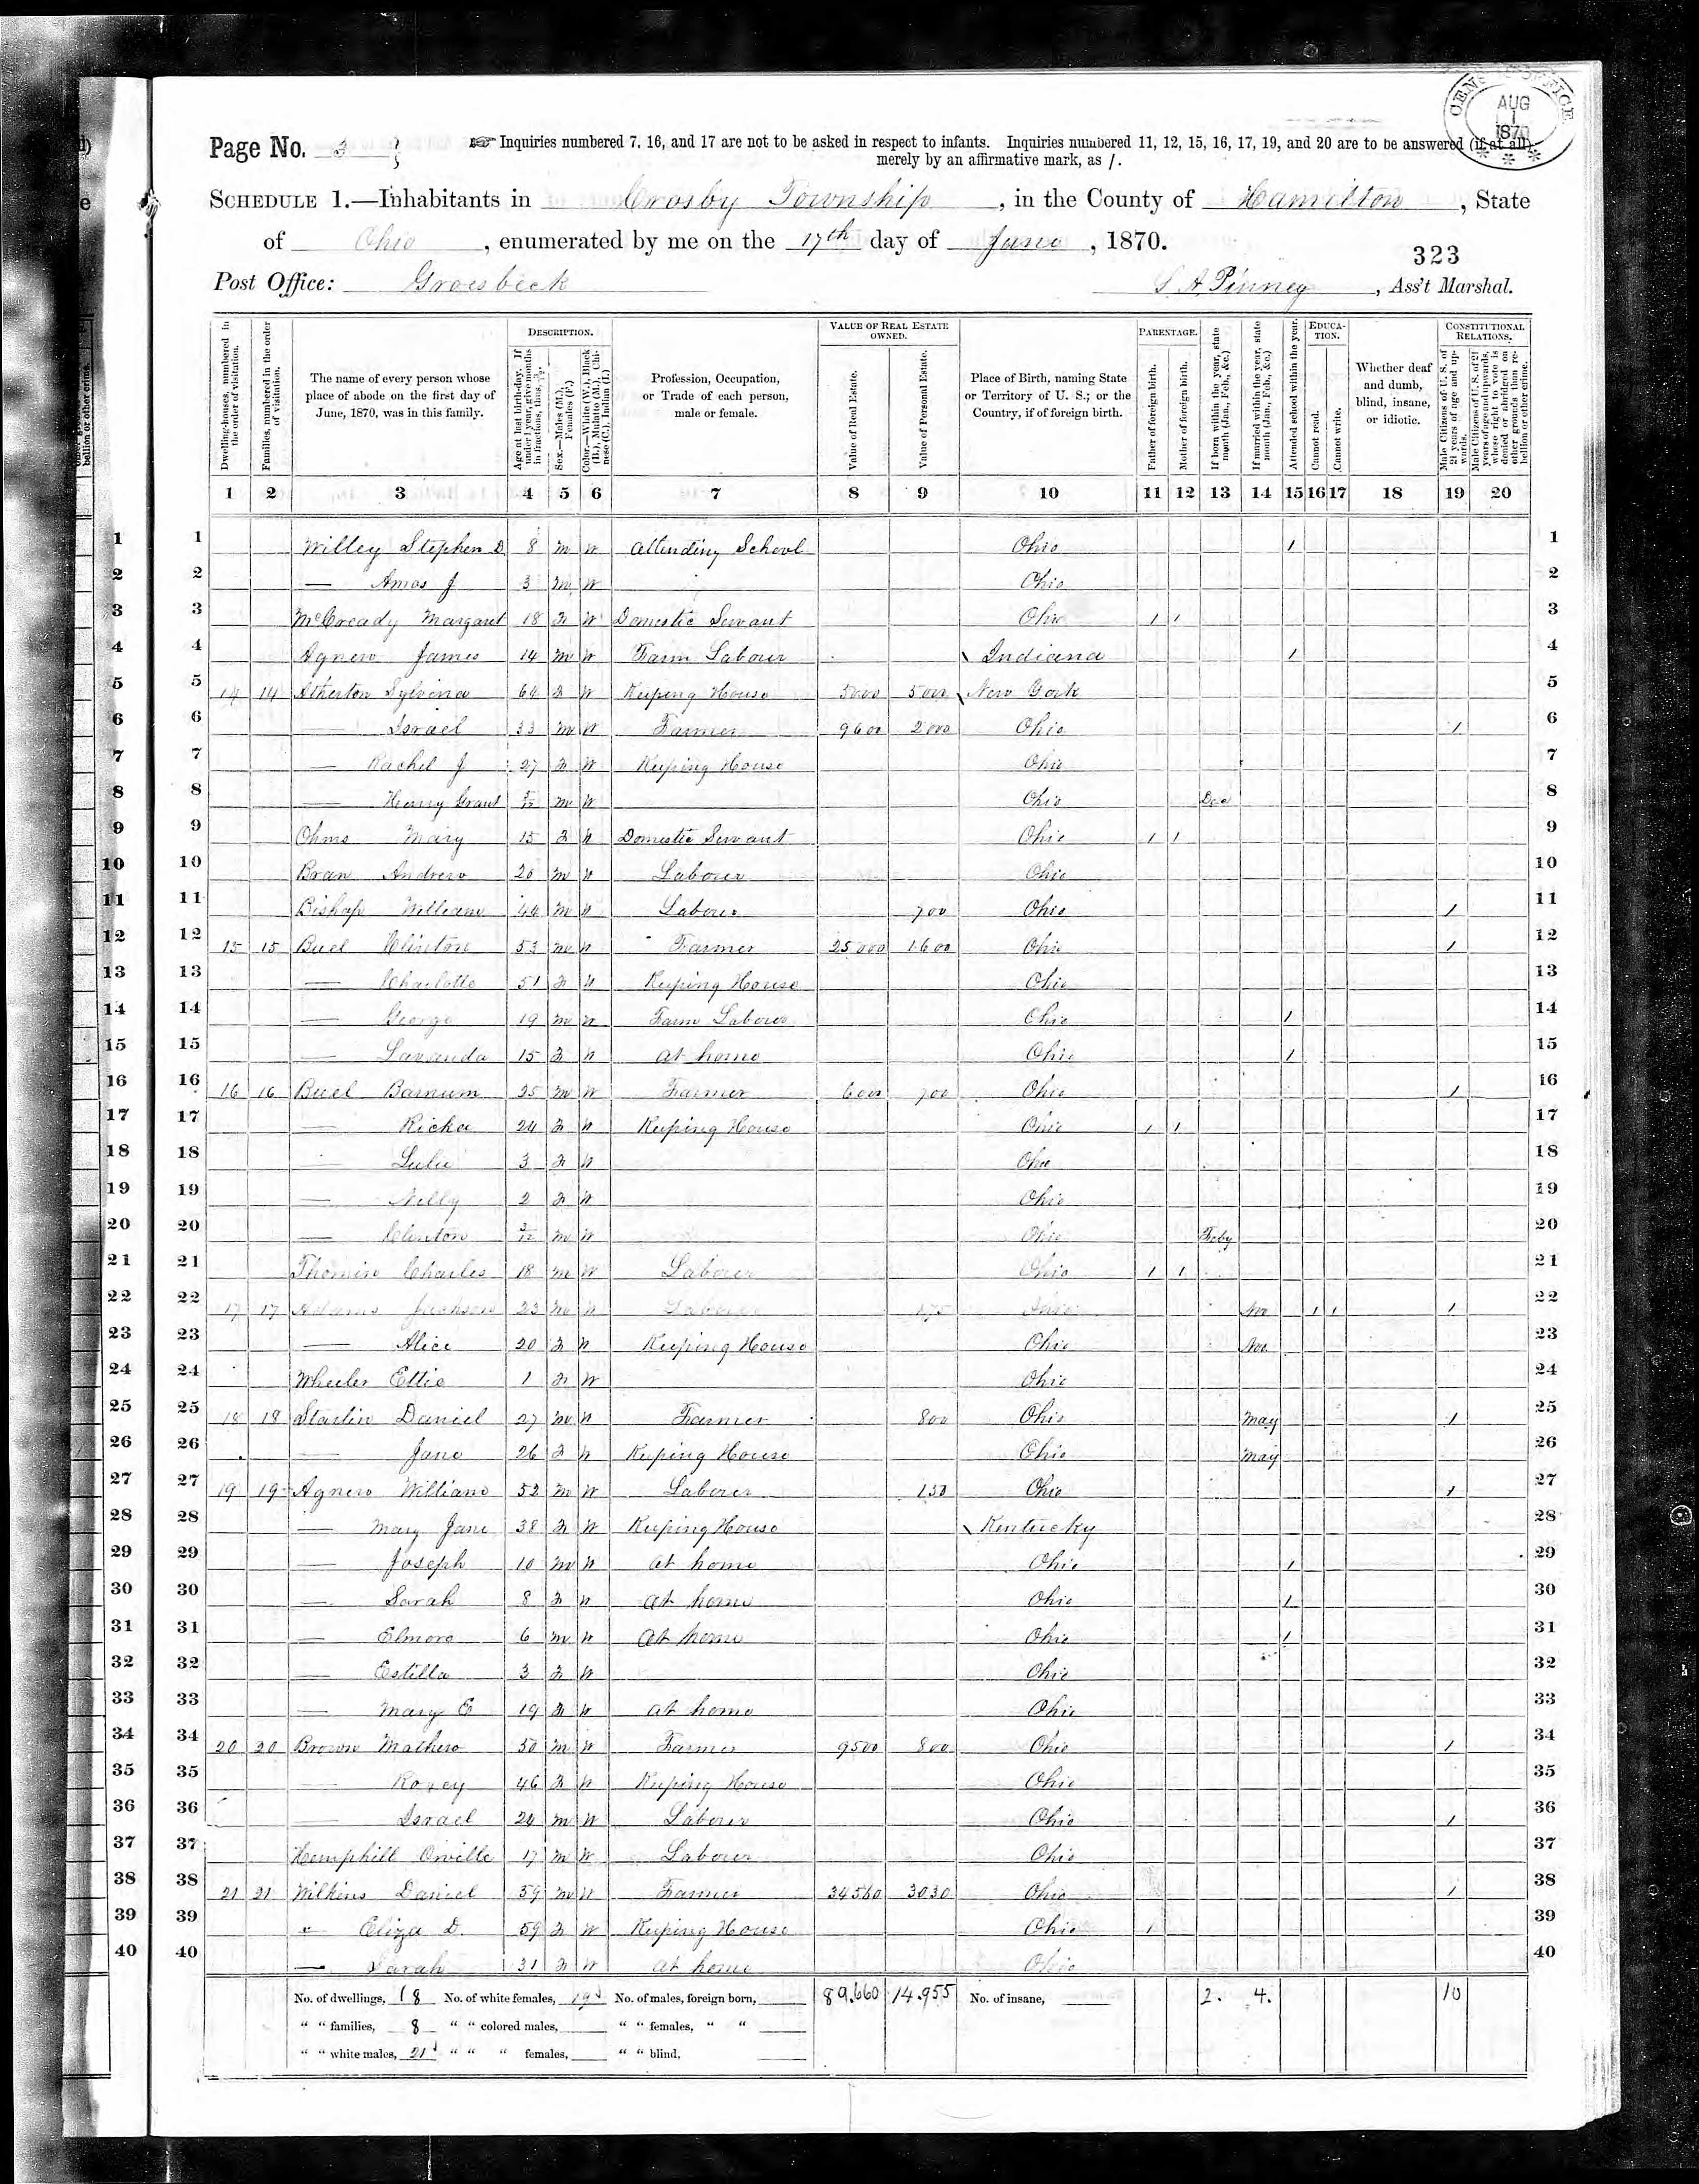 CENSUS OFFICE AUG 1 1870
Page No. 3
Inquiries numbered 7, 16, and 17 are not to be asked in respect to infants. Inquiries numbered 11, 12, 15, 16, 17, 19, and 20 are to be answered (if at all)
merely by an affirmative mark, as /.
SCHEDULE 1.—Inhabitants in Crosby Township, in the County of Hamilton, State
of Ohio, enumerated by me on the 17th day of June, 1870.
323
Post Office: Groesbeck S A Pinney, Ass't Marshal.
Dwelling-houses, numbered in the order of visitation.
Families, numbered in the order of visitation.
The name of every person whose place of abode on the first day of June, 1870, was in this family.
DESCRIPTION.
Age at last birth-day. If under 1 year, give months in fractions, thus, 3/12.
Sex.—Males (M.), Females (F.)
Color.—White (W.), Black (B.), Mulatto (M.), Chinese (C.), Indian (I.)
Profession, Occupation, or Trade of each person, male or female.
VALUE OF REAL ESTATE OWNED.
Value of Real Estate.
Value of Personal Estate.
Place of Birth, naming State or Territory of U. S.; or the Country, if of foreign birth.
PARENTAGE.
Father of foreign birth.
Mother of foreign birth.
If born within the year, state month (Jan., Feb., &c.)
If married within the year, state month (Jan., Feb., &c.)
Attended school within the year.
EDUCATION.
Cannot read.
Cannot write.
Whether deaf and dumb, blind, insane, or idiotic.
CONSTITUTIONAL RELATIONS.
Male Citizens of U. S. of 21 years of age and upwards.
Male Citizens of U. S. of 21 years of age and upwards, whose right to vote is denied or abridged on other grounds than rebellion or other crime.
1 2 3 4 5 6 7 8 9 10 11 12 13 14 15 16 17 18 19 20
1 Willey Stephen D 8 M W Attending School Ohio / 1
2 — Amos J 3 M W Ohio 2
3 McCready Margaret 18 F W Domestic Servant Ohio / / 3
4 Agnew James 14 M W Farm Labour Indiana / 4
5 14 14 Atherton Sylvina 64 F W Keeping House 5000 5000 New York 5
6 — Israel 33 M W Farmer 9600 2000 Ohio / 6
7 — Rachel J 27 F W Keeping House Ohio 7
8 — Henry Grant 5/12 M W Ohio Dec 8
9 Ohms Mary 15 F W Domestic Servant Ohio / / 9
10 Bran Andrew 20 M W Labourer Ohio 10
11 Bishop William 44 M W Labourer 700 Ohio / 11
12 15 15 Buel Clinton 53 M W Farmer 25000 1600 Ohio / 12
13 — Charlotte 51 F W Keeping House Ohio 13
14 — George 19 M W Farm Laborer Ohio / 14
15 — Lavanda 15 F W At home Ohio / 15
16 16 16 Buel Barnum 25 M W Farmer 6000 700 Ohio / 16
17 — Richa 24 F W Keeping House Ohio / / 17
18 Lulie 3 F W Ohio 18
19 — Nelly 2 F W Ohio 19
20 — Clinton 3/12 M W Ohio Feby 20
21 Charles 18 M W Laborer Ohio / / 21
22 17 17 Adams Jackson 23 M W Laborer 175 Ohio Nov / / / 22
23 — Alice 20 F W Keeping House Ohio Nov 23
24 Wheeler Ettie 1 F W Ohio 24
25 18 18 Starlin Daniel 27 M W Farmer 800 Ohio May / 25
26 — Jane 26 F W Keeping House Ohio May 26
27 19 19 Agnew William 52 M W Laborer 150 Ohio / 27
28 — Mary Jane 38 F W Keeping House Kentucky 28
29 — Joseph 10 M W At home Ohio / 29
30 — Sarah 8 F W At home Ohio / 30
31 — Elmore 6 M W At home Ohio / 31
32 — Estilla 3 F W Ohio 32
33 — Mary E 19 F W At home Ohio 33
34 20 20 Brown Mathew 50 M W Farmer 9500 800 Ohio / 34
35 — Roxey 46 F W Keeping House Ohio 35
36 — Israel 24 M W Laborer Ohio / 36
37 Hemphill Orville 17 M W Laborer Ohio 37
38 21 21 Wilkins Daniel 59 M W Farmer 34560 3030 Ohio / 38
39 " Eliza D. 59 F W Keeping House Ohio / 39
40 — Sarah 31 F W At home Ohio 40
No. of dwellings, 8 No. of white females, 19 No. of males, foreign born, 89.660 14.955 No. of insane, 2. 4. 10
" " families, 8 " " colored males, " " females, " "
" " white males, 21 " " " females, " " blind,